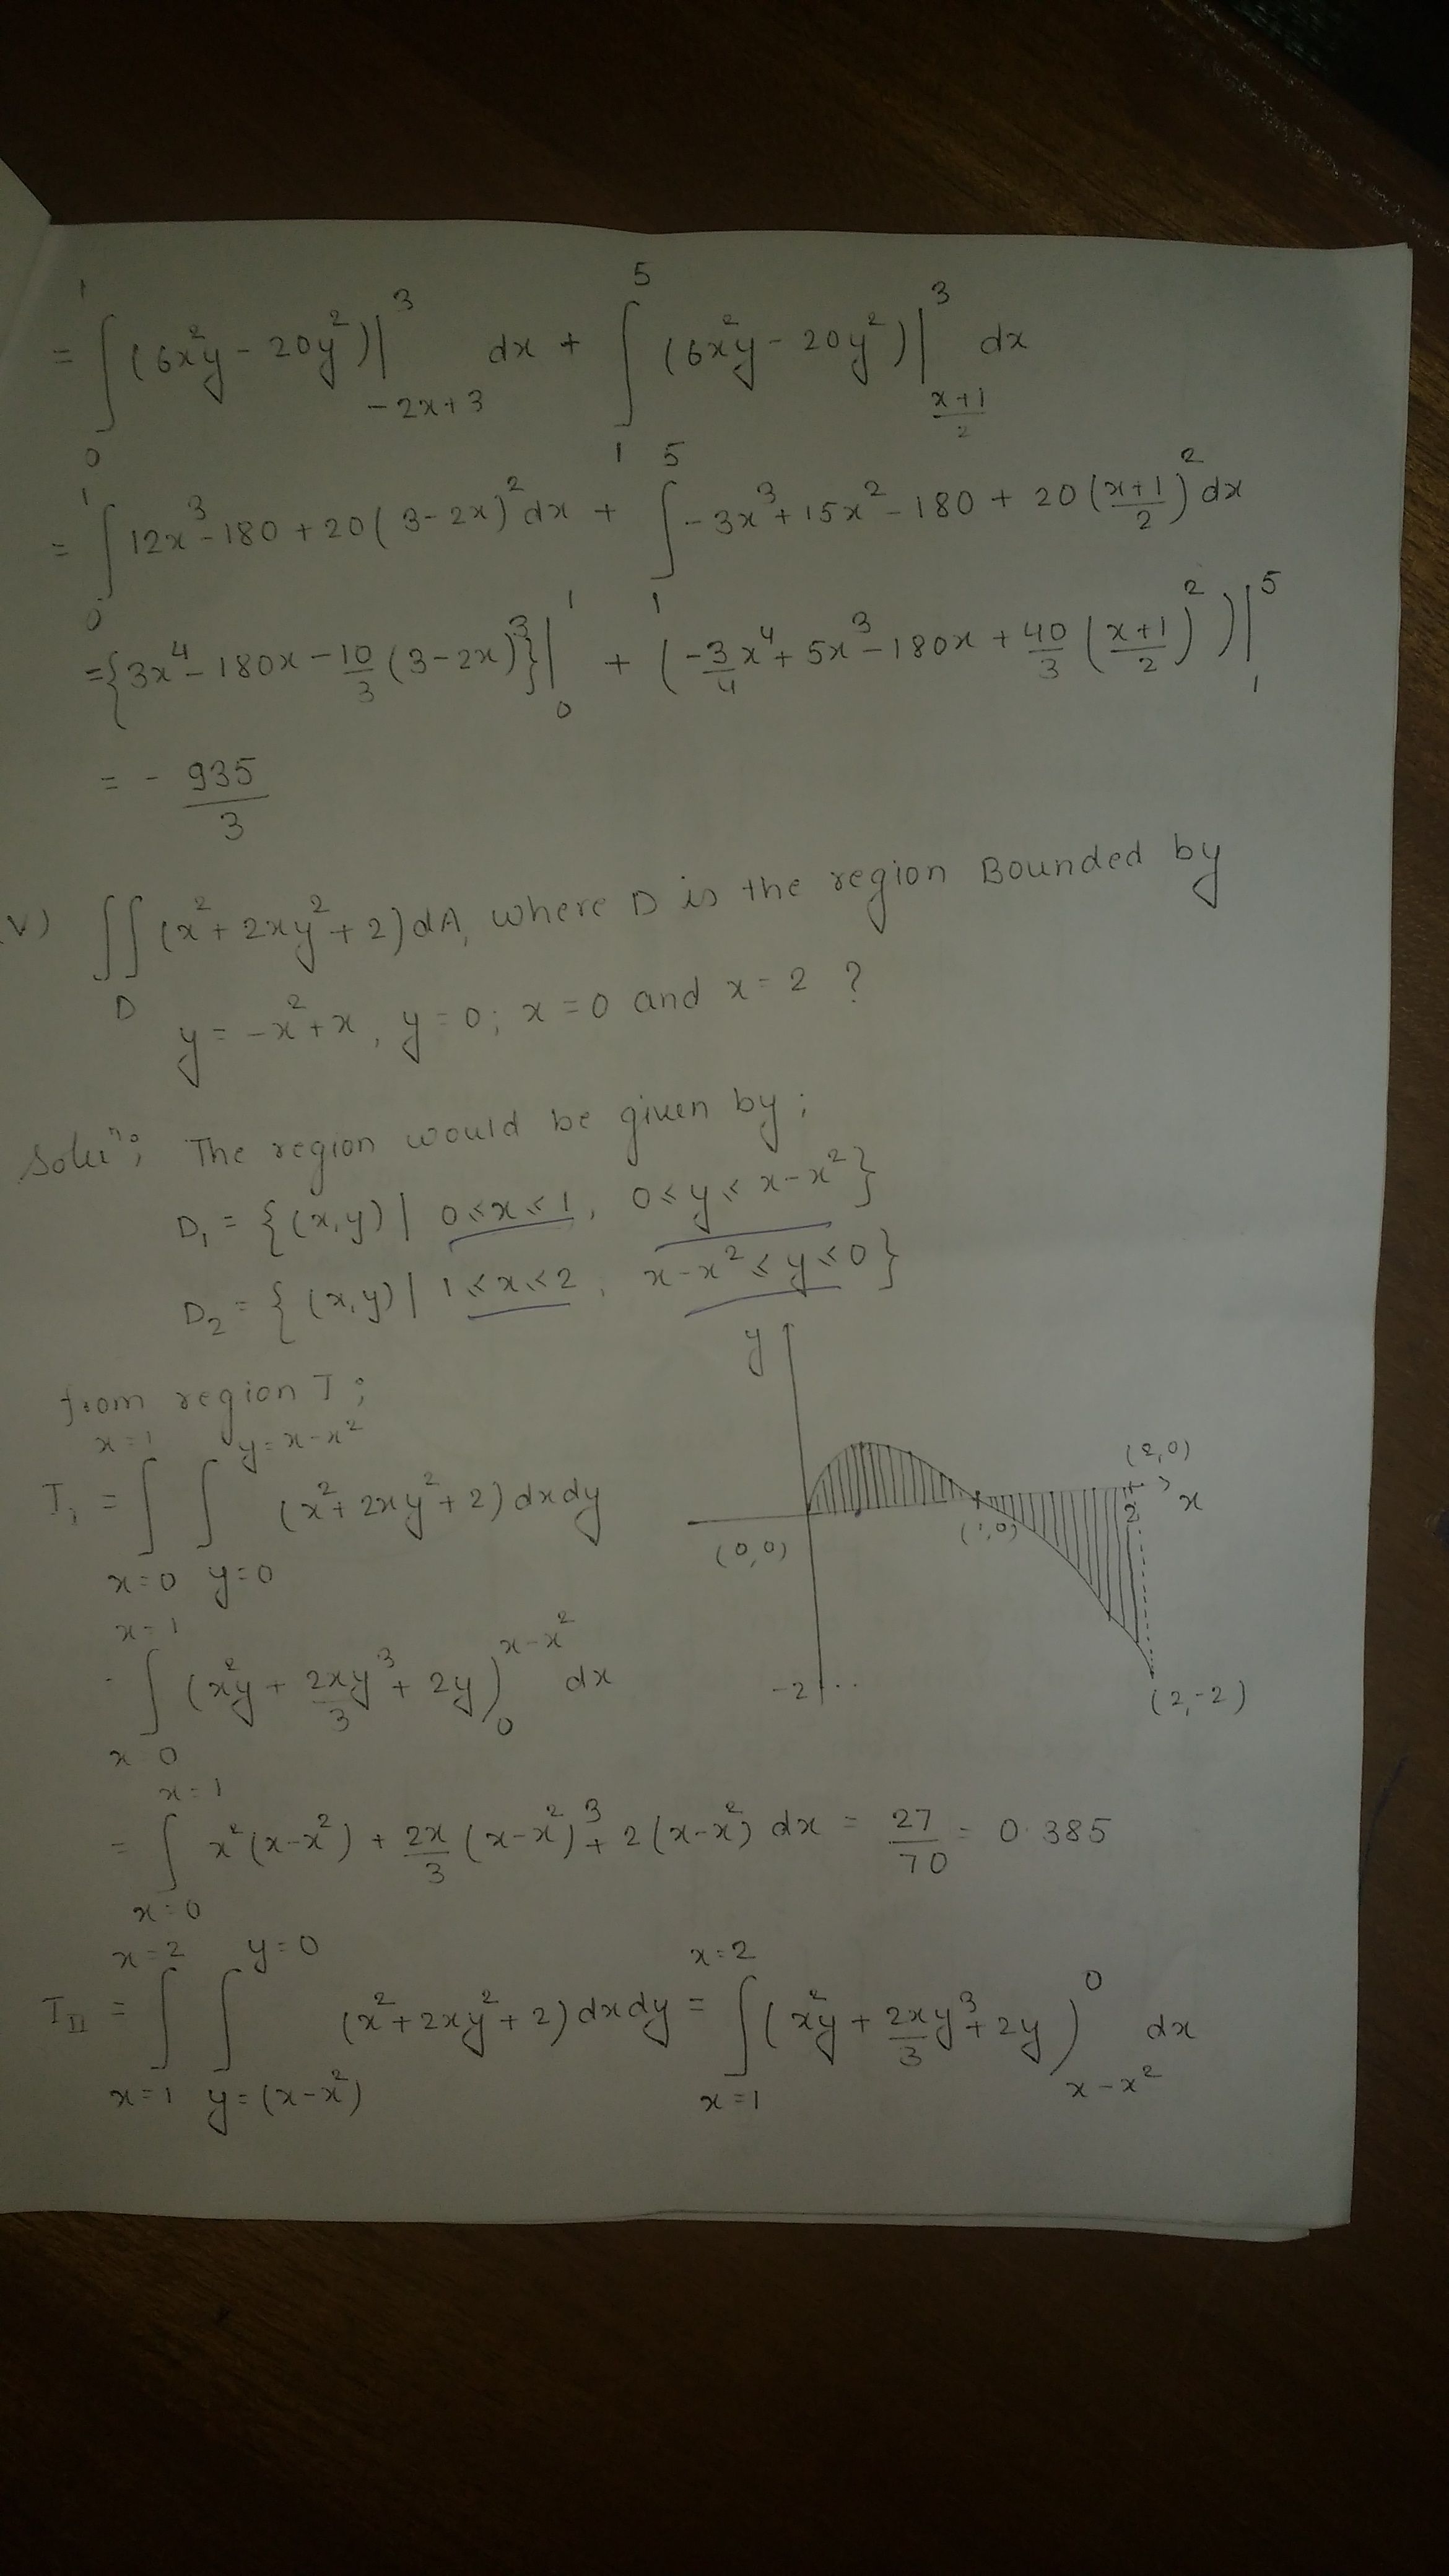 = ∫₀¹ (6x²y - 20y²)|₋₂ₓ₊₃³ dx + ∫₁⁵ (6x²y - 20y²)|_{(x+1)/2}^{3} dx
= ∫₀¹ 12x³ - 180 + 20(3-2x)² dx + ∫₁⁵ -3x³ + 15x² - 180 + 20((x+1)/2)² dx
= {3x⁴ - 180x - 10/3 (3-2x)³}|₀¹ + (-3/4 x⁴ + 5x³ - 180x + 40/3 ((x+1)/2)²)|₁⁵
= - 935/3
V) ∬_D (x² + 2xy² + 2) dA, where D is the region Bounded by
y = -x² + x, y = 0; x = 0 and x = 2 ?
Soluⁿ: The region would be given by;
D₁ = {(x,y) | 0 ≤ x ≤ 1, 0 ≤ y ≤ x - x²}
D₂ = {(x,y) | 1 ≤ x ≤ 2, x - x² ≤ y ≤ 0}
from region I;
I₁ = ∫_{x=0}^{x=1} ∫_{y=0}^{y=x-x²} (x² + 2xy² + 2) dx dy
y
(2,0)
x
2
(0,0)
(1,0)
-2
(2,-2)
∫_{x 0}^{x=1} (x²y + 2xy³/3 + 2y)₀^{x-x²} dx
= ∫_{x=0}^{x=1} x²(x-x²) + 2x/3 (x-x²)³ + 2(x-x²) dx = 27/70 = 0.385
I_II = ∫_{x=1}^{x=2} ∫_{y=(x-x²)}^{y=0} (x² + 2xy² + 2) dx dy = ∫_{x=1}^{x=2} (x²y + 2x/3 y³ + 2y)_{x-x²}^{0} dx